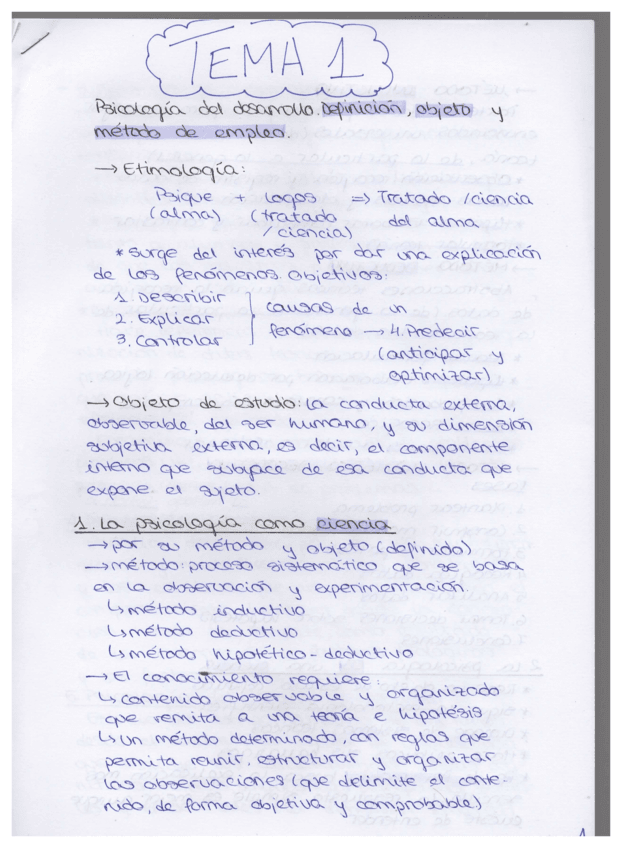 TEMA 1
Psicología del desarrollo. Definición, objeto y
método de empleo.
→ Etimología:
Psique + Logos => Tratado /ciencia
(alma) (tratado del alma
/ciencia)
* surge del interés por dar una explicación
de los fenómenos. Objetivos:
1. Describir
2. Explicar
3. Controlar
causas de un
fenómeno → 4. Predecir
(anticipar y
optimizar)
→ Objeto de estudio: La conducta externa,
observable, del ser humano, y su dimensión
subjetiva externa, es decir, el componente
interno que subyace de esa conducta que
expone el sujeto.
1. La psicología como ciencia
→ por su método y objeto (definido)
→ método: proceso sistemático que se basa
en la observación y experimentación.
↳ método inductivo
↳ método deductivo
↳ método hipotético-deductivo
→ El conocimiento requiere:
↳ contenido observable y organizado
que remita a una teoría e hipótesis
↳ un método determinado, con reglas que
permita reunir, estructurar y organizar
las observaciones (que delimite el conte-
nido, de forma objetiva y comprobable)
1